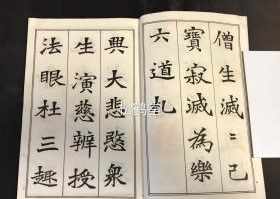 僧生滅〻已
寶寂滅為樂
六道礼
興大悲愍衆
生演慈辨授
法眼杜三趣